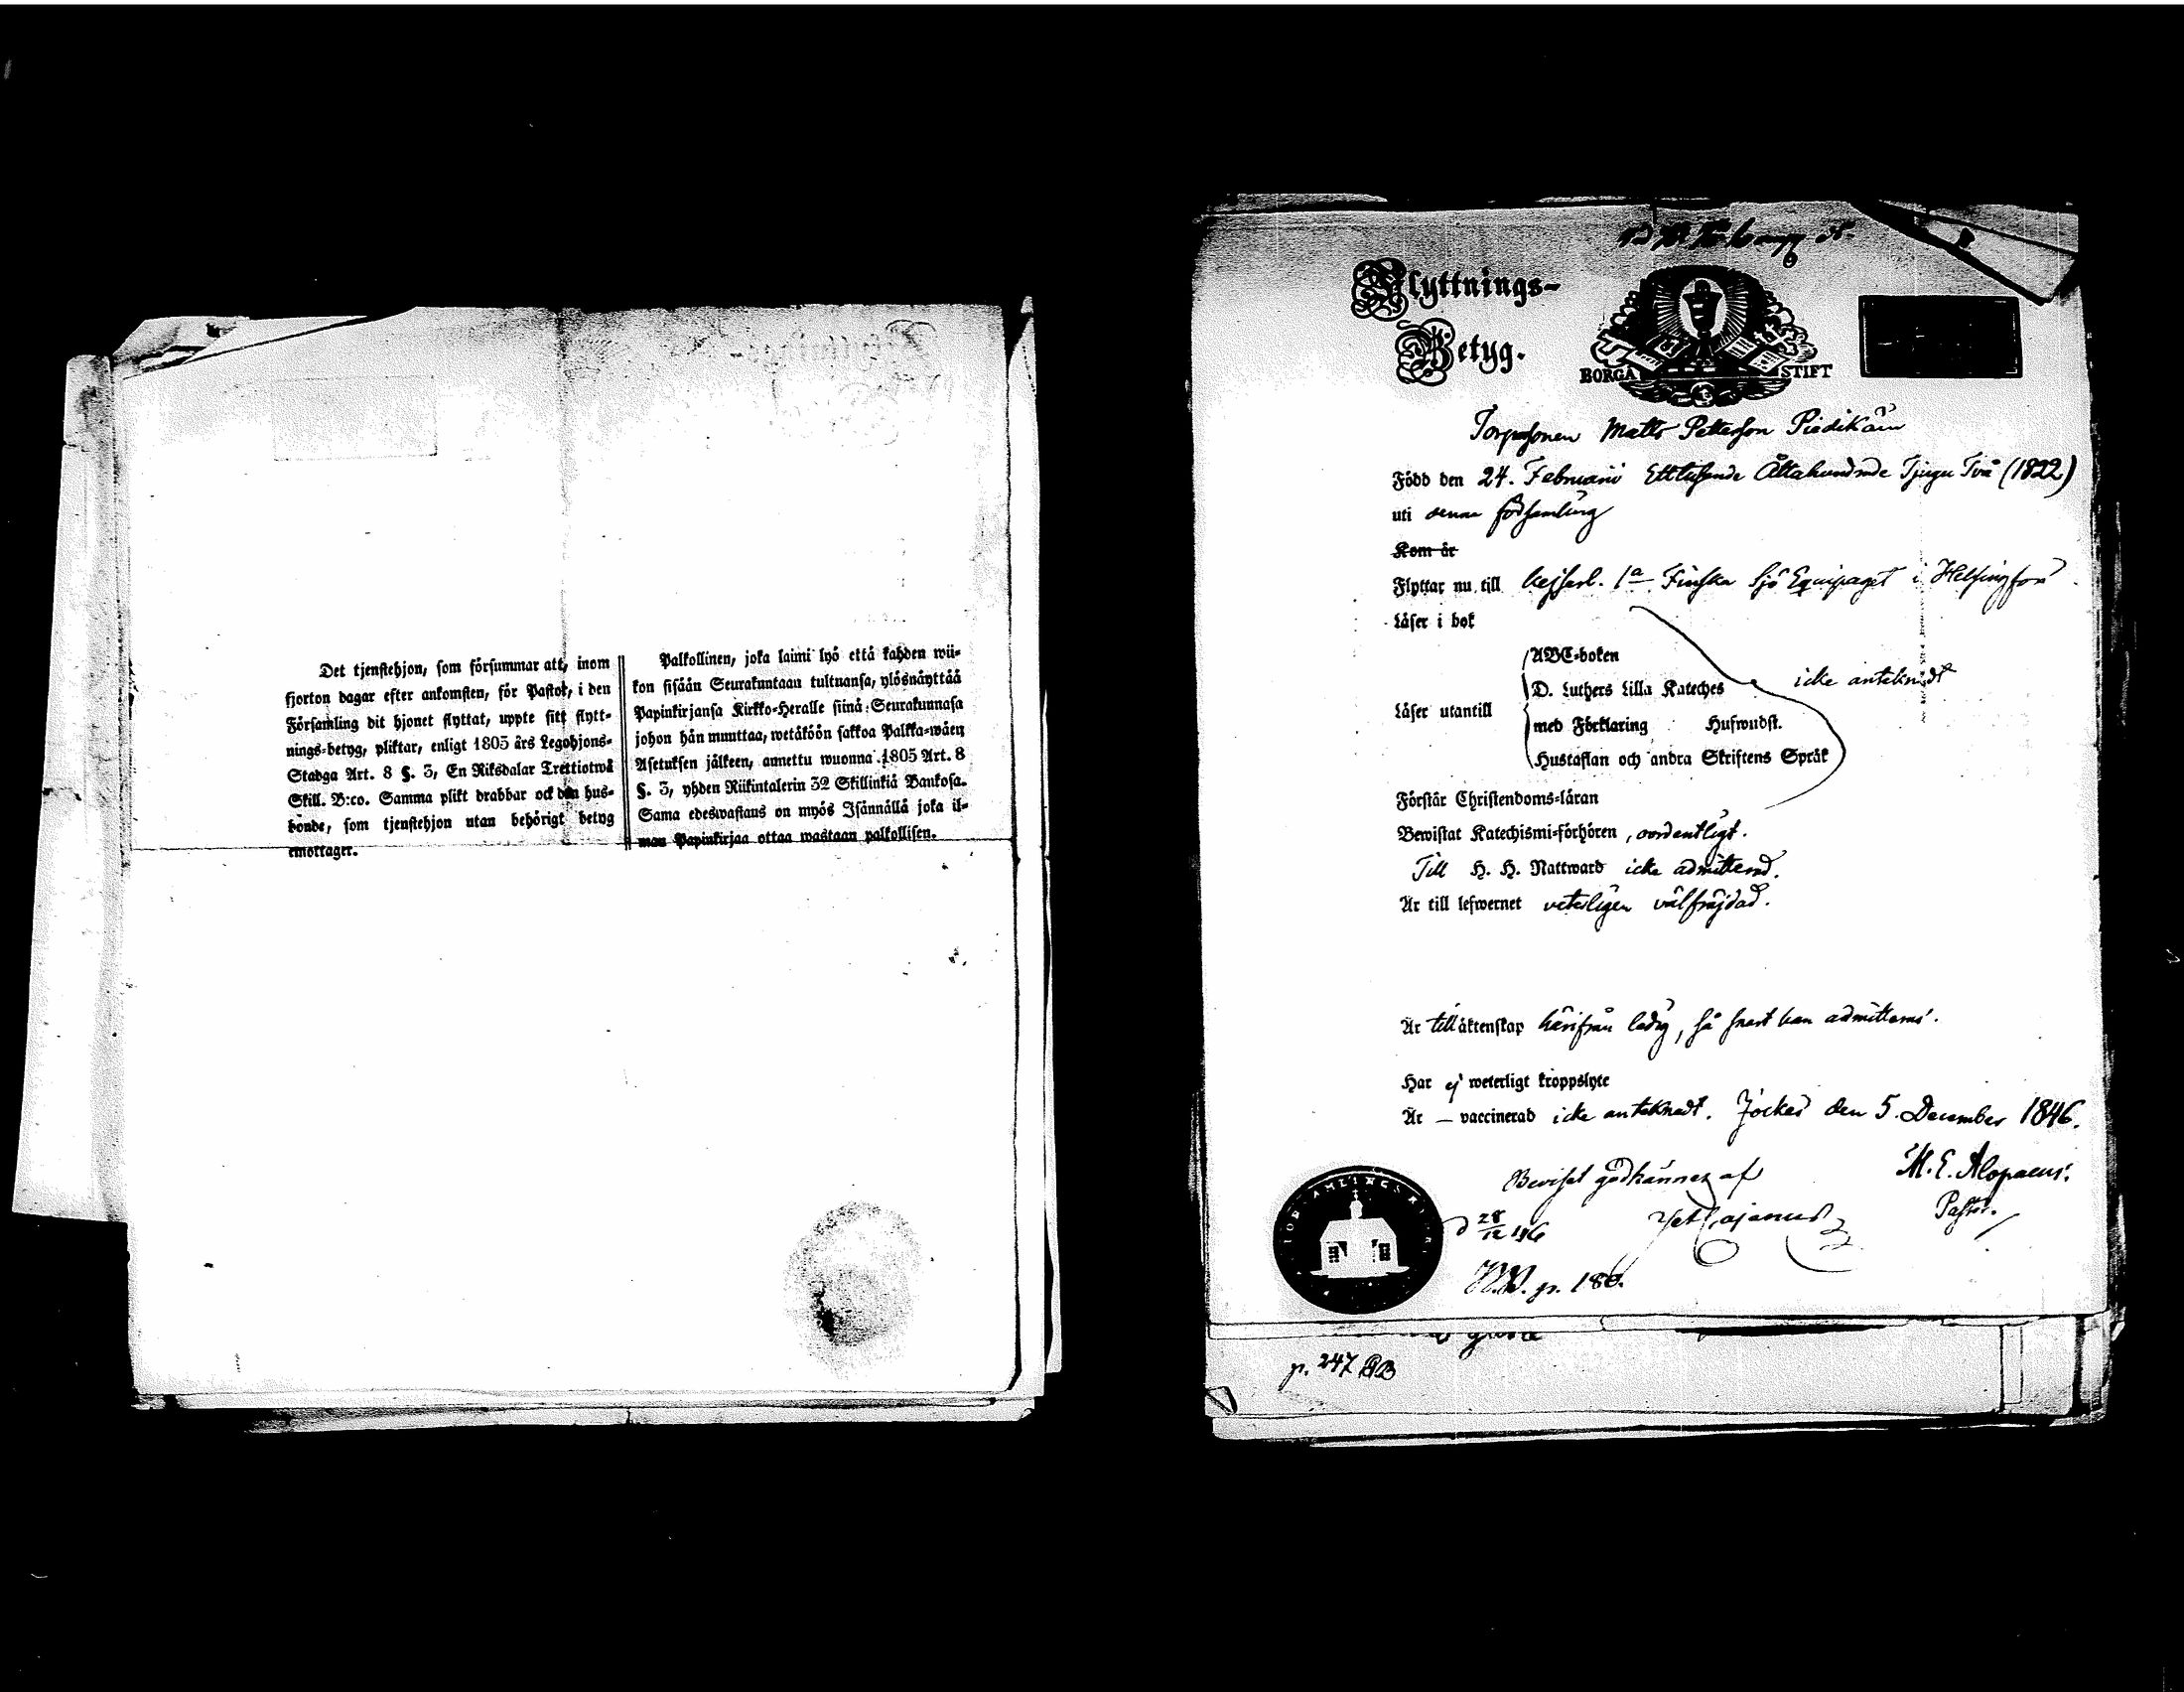 Det tjenstehjon, som försummar att, inom
fjorton dagar efter ankomsten, för Pastor, i den
Församling dit hjonet flyttat, uppte sitt flytt-
nings-betyg, pliktar, enligt 1805 års Legohjons-
Stadga Art. 8 §. 3, En Riksdalar Trettiotwå
Skill. B:co. Samma plikt drabbar ock den hus-
bonde, som tjenstehjon utan behörigt betyg
emottager.
Palkollinen, joka laimi lyö että kahden wii-
kon sisään Seurakuntaan tultuansa, ylösnäyttää
Papinkirjansa Kirkko-Heralle siinä Seurakunnasa
johon hän muuttaa, wetäköön sakkoa Palkka-wäen
Asetuksen jälkeen, annettu wuonna 1805 Art. 8
§. 3, yhden Riikintalerin 32 Skillinkiä Bankosa.
Sama edeswastaus on myös Isännällä joka il-
man Papinkirjaa ottaa wastaan palkollisen.
Flyttnings-
Betyg.
BORGÅ STIFT
Torpsonen Matts Petterson Piedikäin
Född den 24. Februarii Ettusende Åttahundrade Tjugu Två (1822)
uti denna församling
Kom år
Flyttar nu till Kejserl. 1a Finska Sjö Equipaget i Helsingfors
Läser i bok
ABC-boken
D. Luthers Lilla Kateches icke anteknadt
Läser utantill
med Förklaring Hufwudst.
Hustaflan och andra Skriftens Språk
Förstår Christendoms-läran
Bewistat Katechismi-förhören, oordentligt.
Till H. H. Nattward icke admitterad.
Är till lefwernet veterligen välfräjdad.
Är till äktenskap härifrån ledig, så snart han admitteras.
Har ej weterligt kroppslyte
Är — vaccinerad icke anteknadt. Jockas den 5. December 1846.
Beviset godkännes af
M. E. Alopaeus.
d 28/12 46
Pastor.
p. 180.
p. 247